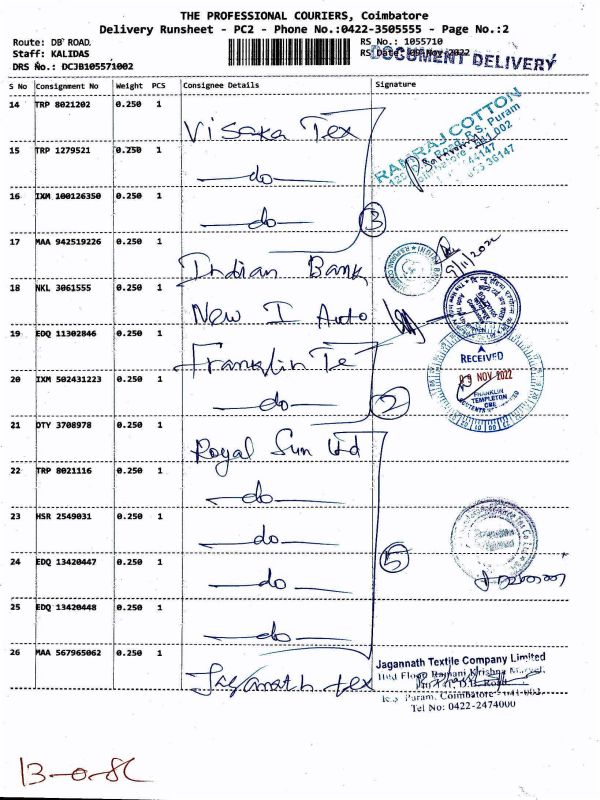 THE PROFESSIONAL COURIERS, Coimbatore
Delivery Runsheet - PC2 - Phone No.:0422-3505555 - Page No.:2
Route: DB ROAD,
Staff: KALIDAS
DRS No.: DCJB105571002
RS No.: 1055710
RS Date: 09-Nov-2022
DOCUMENT DELIVERY
S No Consignment No Weight PCS Consignee Details Signature
14 TRP 8021202 0.250 1 Visaka Tex
RAMRAJ COTTON
15 TRP 1279521 0.250 1 do
16 IXM 100126350 0.250 1 do
3
17 MAA 942519226 0.250 1 Indian Bank
9/11/2022
18 NKL 3061555 0.250 1 New I Auto
19 EDQ 11302846 0.250 1 Franklin Te
RECEIVED
09 NOV 2022
FRANKLIN
TEMPLETON
CBE
20 IXM 502431223 0.250 1 do
2
21 DTY 3708978 0.250 1 Royal Sun Ltd
22 TRP 8021116 0.250 1 do
23 HSR 2549031 0.250 1 do
24 EDQ 13420447 0.250 1 do
5
25 EDQ 13420448 0.250 1 do
26 MAA 567965062 0.250 1 Jaganath tex
Jagannath Textile Company Limited
Floor Rajnani Krishna
D.B. Road
Puram, Coimbatore 641 002
Tel No: 0422-2474000